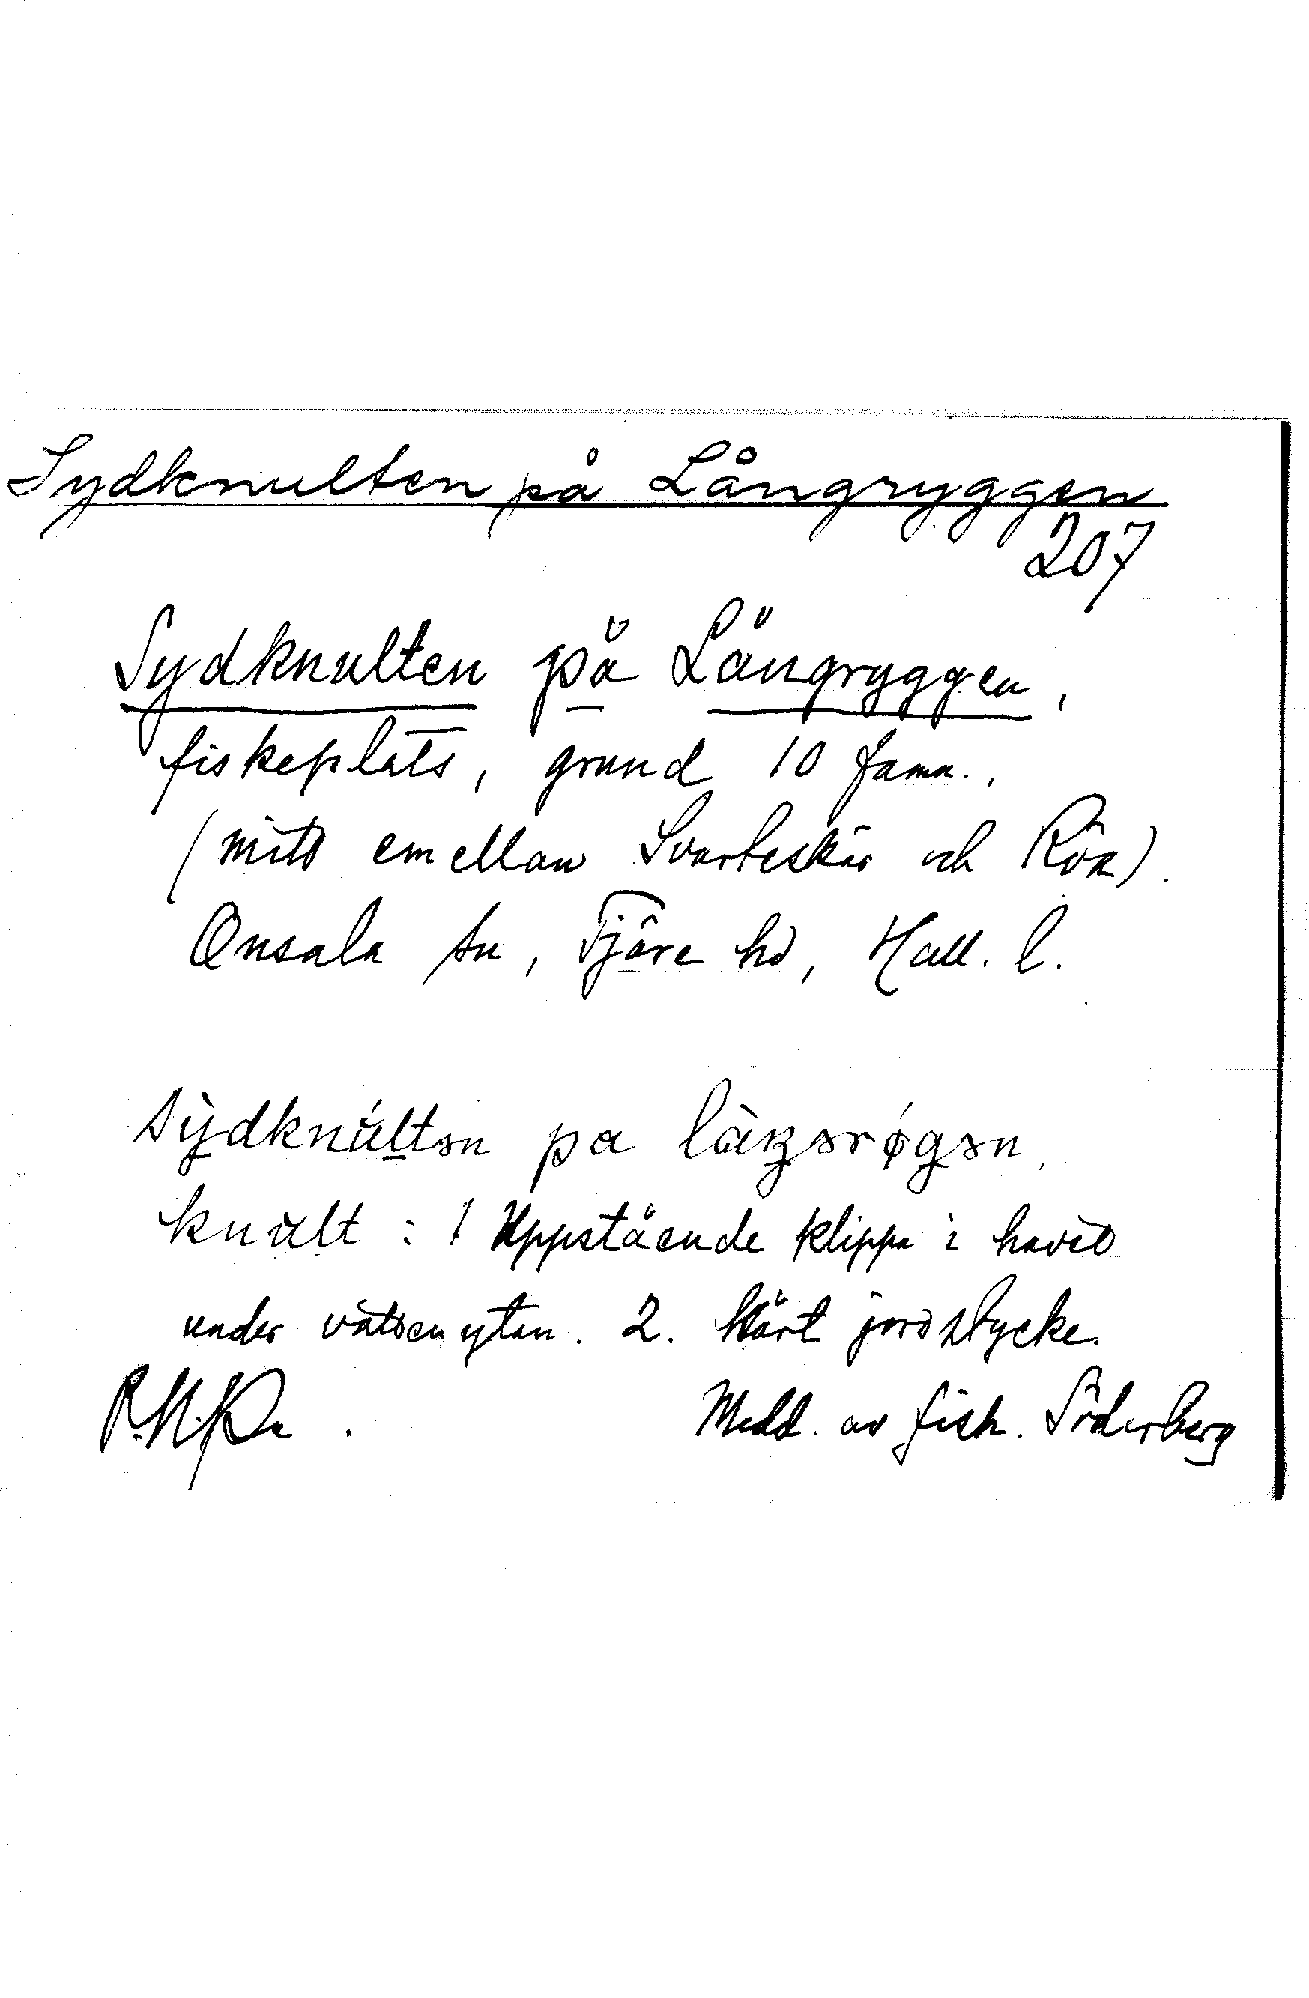 Sydknulten på Långryggen
207
Sydknulten på Långryggen,
fiskeplats, grund 10 famn.,
(mitt emellan Svarteskär och Rön).
Onsala sn, Fjäre hd, Hall. l.
knult : 1 Uppstående klippa i havet
under vattenytan. 2. Hårt jordstycke.
Medd. av fisk. Söderberg